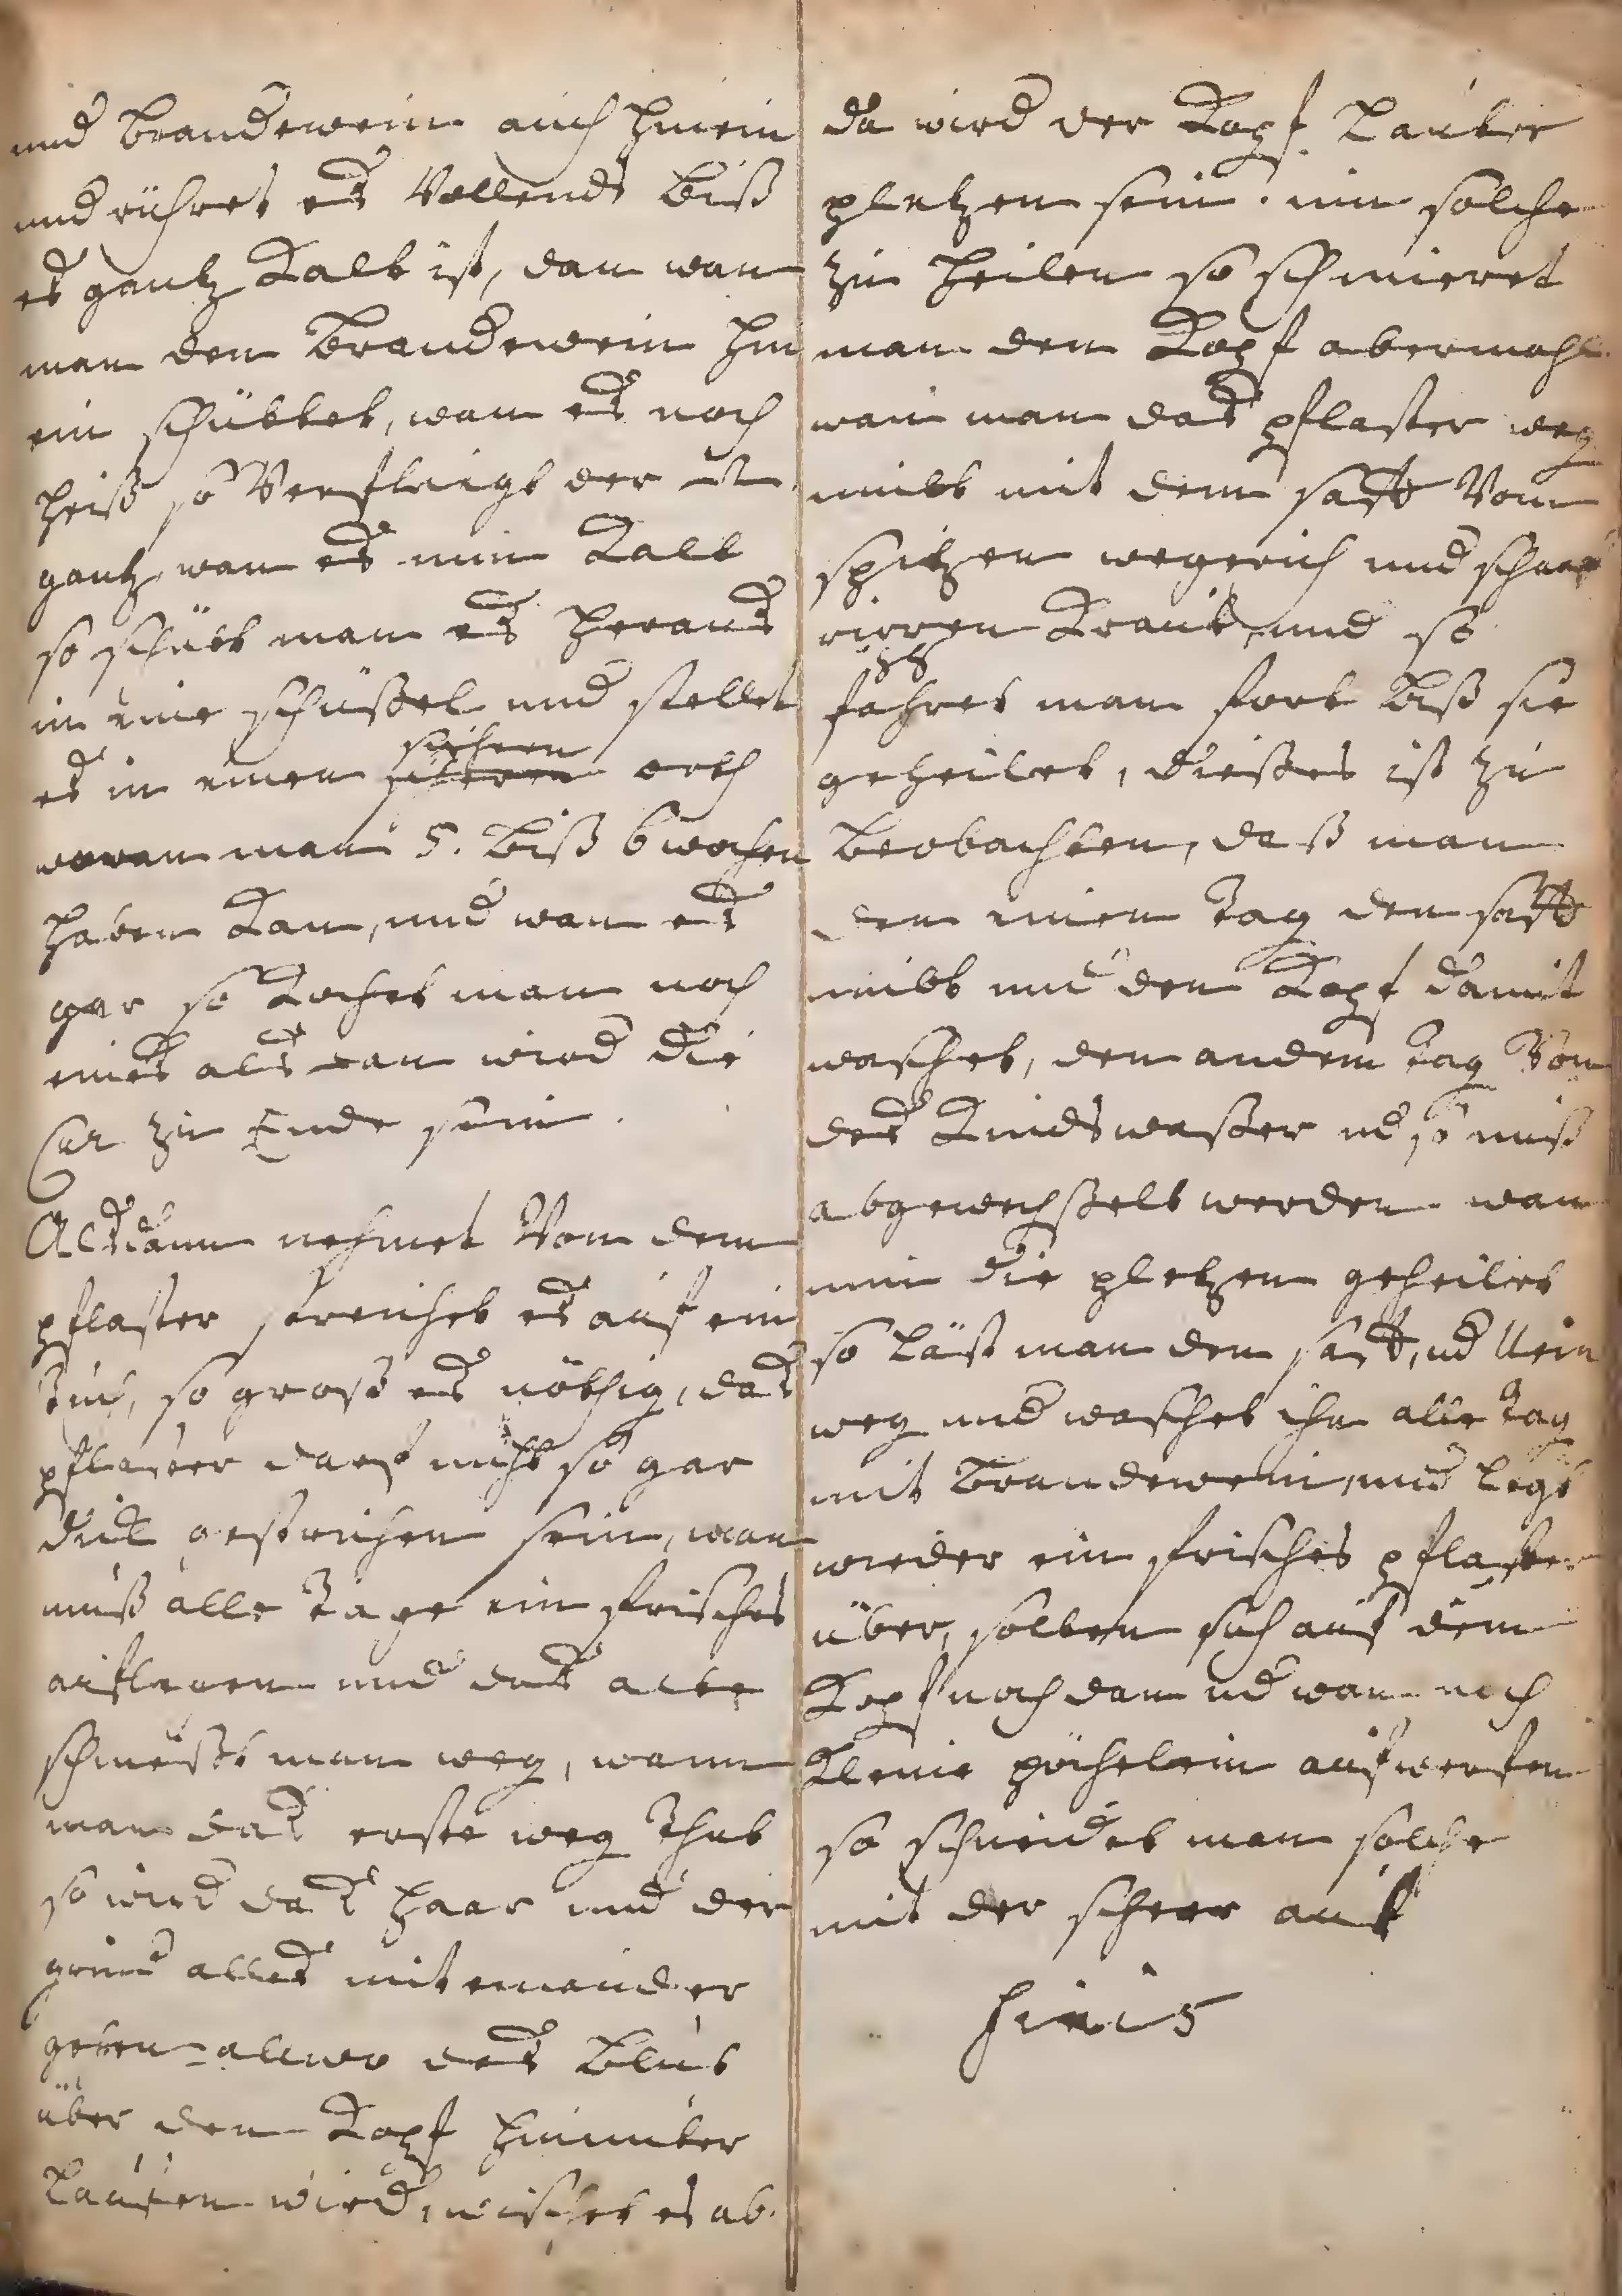 und brandewein auch hinein
und rühret es Vollends biß
es gantz Kalt ist, dan wan
man den brandewein hin
ein schüttet, wan es noch
heiß so Verfleigt der
gantz, wan es nun Kalt
so schütt man es heraus
in eine schüßel und stellet
es in einen sichern orth
woran man 5. biß 6 wochen
haben Kan, und wan es
gar so Kochet man noch
eines als dan wird die
Cur zu Ende sein.
Alsdann nehmet Von dem
pflaster streichet es auf ein
Tuch, so groß es nöthig, das
pflaster darf nicht so gar
dick gestrichen sein, man
muß alle Tage ein frisches
auflegen und das alte
schmeißt man weg, wann
man das erste weg Thut
so wird das haar und der
grind alles mit einander
gehen allwo das blut
über den Kopf hinunter
laufen wird, wischet es ab.
da wird der Kopf lauter
pletzen sein. um solche
zu heilen so schmieret
man den Kopf abermahl
wan man das pflaster weg
nimt mit dem safft Vom
spitzen wegerich und schaaf
rippen Kraut, und so
fahret man fort biß sie
geheilet, dießes ist zu
beobachten, daß man
den einen Tag den safft
nimt und den Kopf damit
waschet, den andern tag Von
des Kinds waßer ud so muß
abgewechßelt werden. wan
nun die pletzen geheilet
so läst man den safft, ud Urin
weg und waschet ihn alle tag
mit brandewein, und legt
wieder ein frisches pflaster
über, solten sich auf dem
Kopf noch dan ud wan noch
Kleine pöchelein aufwerfen
so schneidet man solche
mit der scheer auf
finis